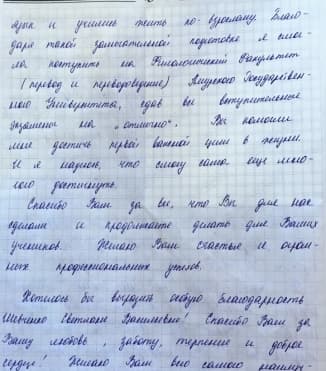 язык и учились жить по-взрослому. Благо-
даря такой замечательной подготовке я смог-
ла поступить на Филологический Факультет
(перевод и переводоведение) Амурского Государствен-
ного Университета, сдав все вступительные
экзамены на „отлично". Вы помогли
мне достичь первой важной цели в жизни.
И я надеюсь, что смогу сама еще мно-
гого достигнуть.
Спасибо Вам за все, что Вы для нас
сделали и продолжаете делать для Ваших
учеников. Желаю Вам счастья и огром-
ных профессиональных успехов.
Хотелось бы выразить особую благодарность
Шевченко Светлане Васильевне! Спасибо Вам за
Вашу любовь, заботу, терпение и доброе
сердце! Желаю Вам всего самого наилуч-